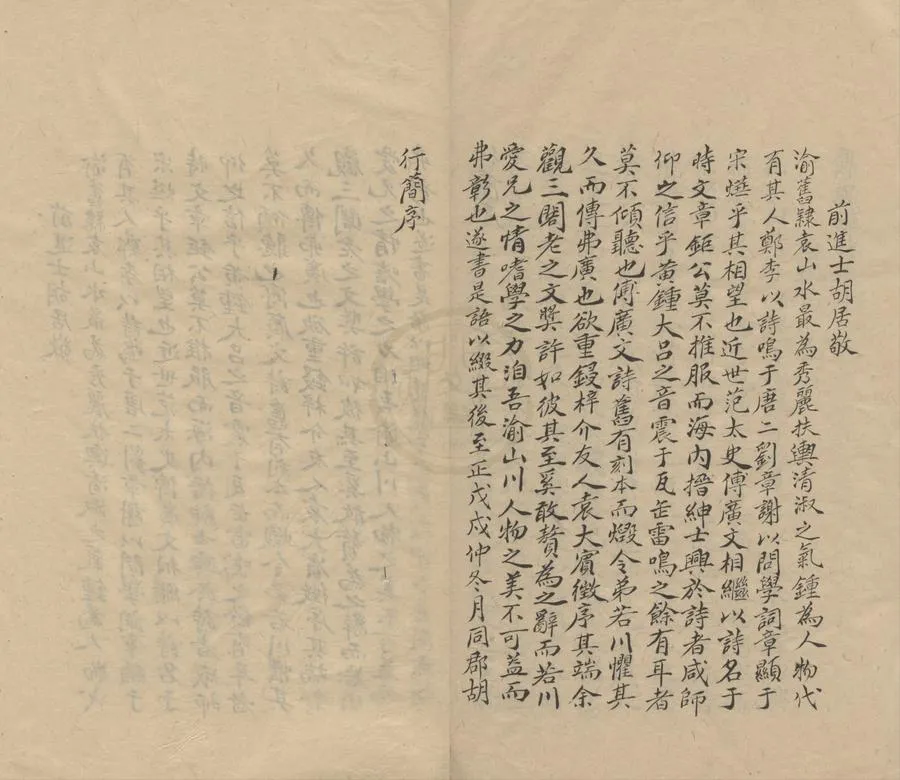 前進士胡居敬
渝舊隸袁山水最為秀麗扶輿清淑之氣鍾為人物代
有其人鄭李以詩鳴于唐二劉章謝以問學詞章顯于
宋㷼乎其相望也近世范太史傅廣文相繼以詩名于
時文章鉅公莫不推服而海内搢紳士興於詩者咸師
仰之信乎黄鍾大吕之音震于瓦缶雷鳴之餘有耳者
莫不傾聽也傅廣文詩舊有刻本而燬令弟若川懼其
久而傳弗廣也欲重鋟梓介友人袁大賓徵序其端余
觀三閣老之文奬許如彼其至奚敢贅為之辭而若川
愛兄之情嗜學之力洎吾渝山川人物之美不可益而
弗彰也遂書是語以綴其後至正戊戌仲冬月同郡胡
行簡序